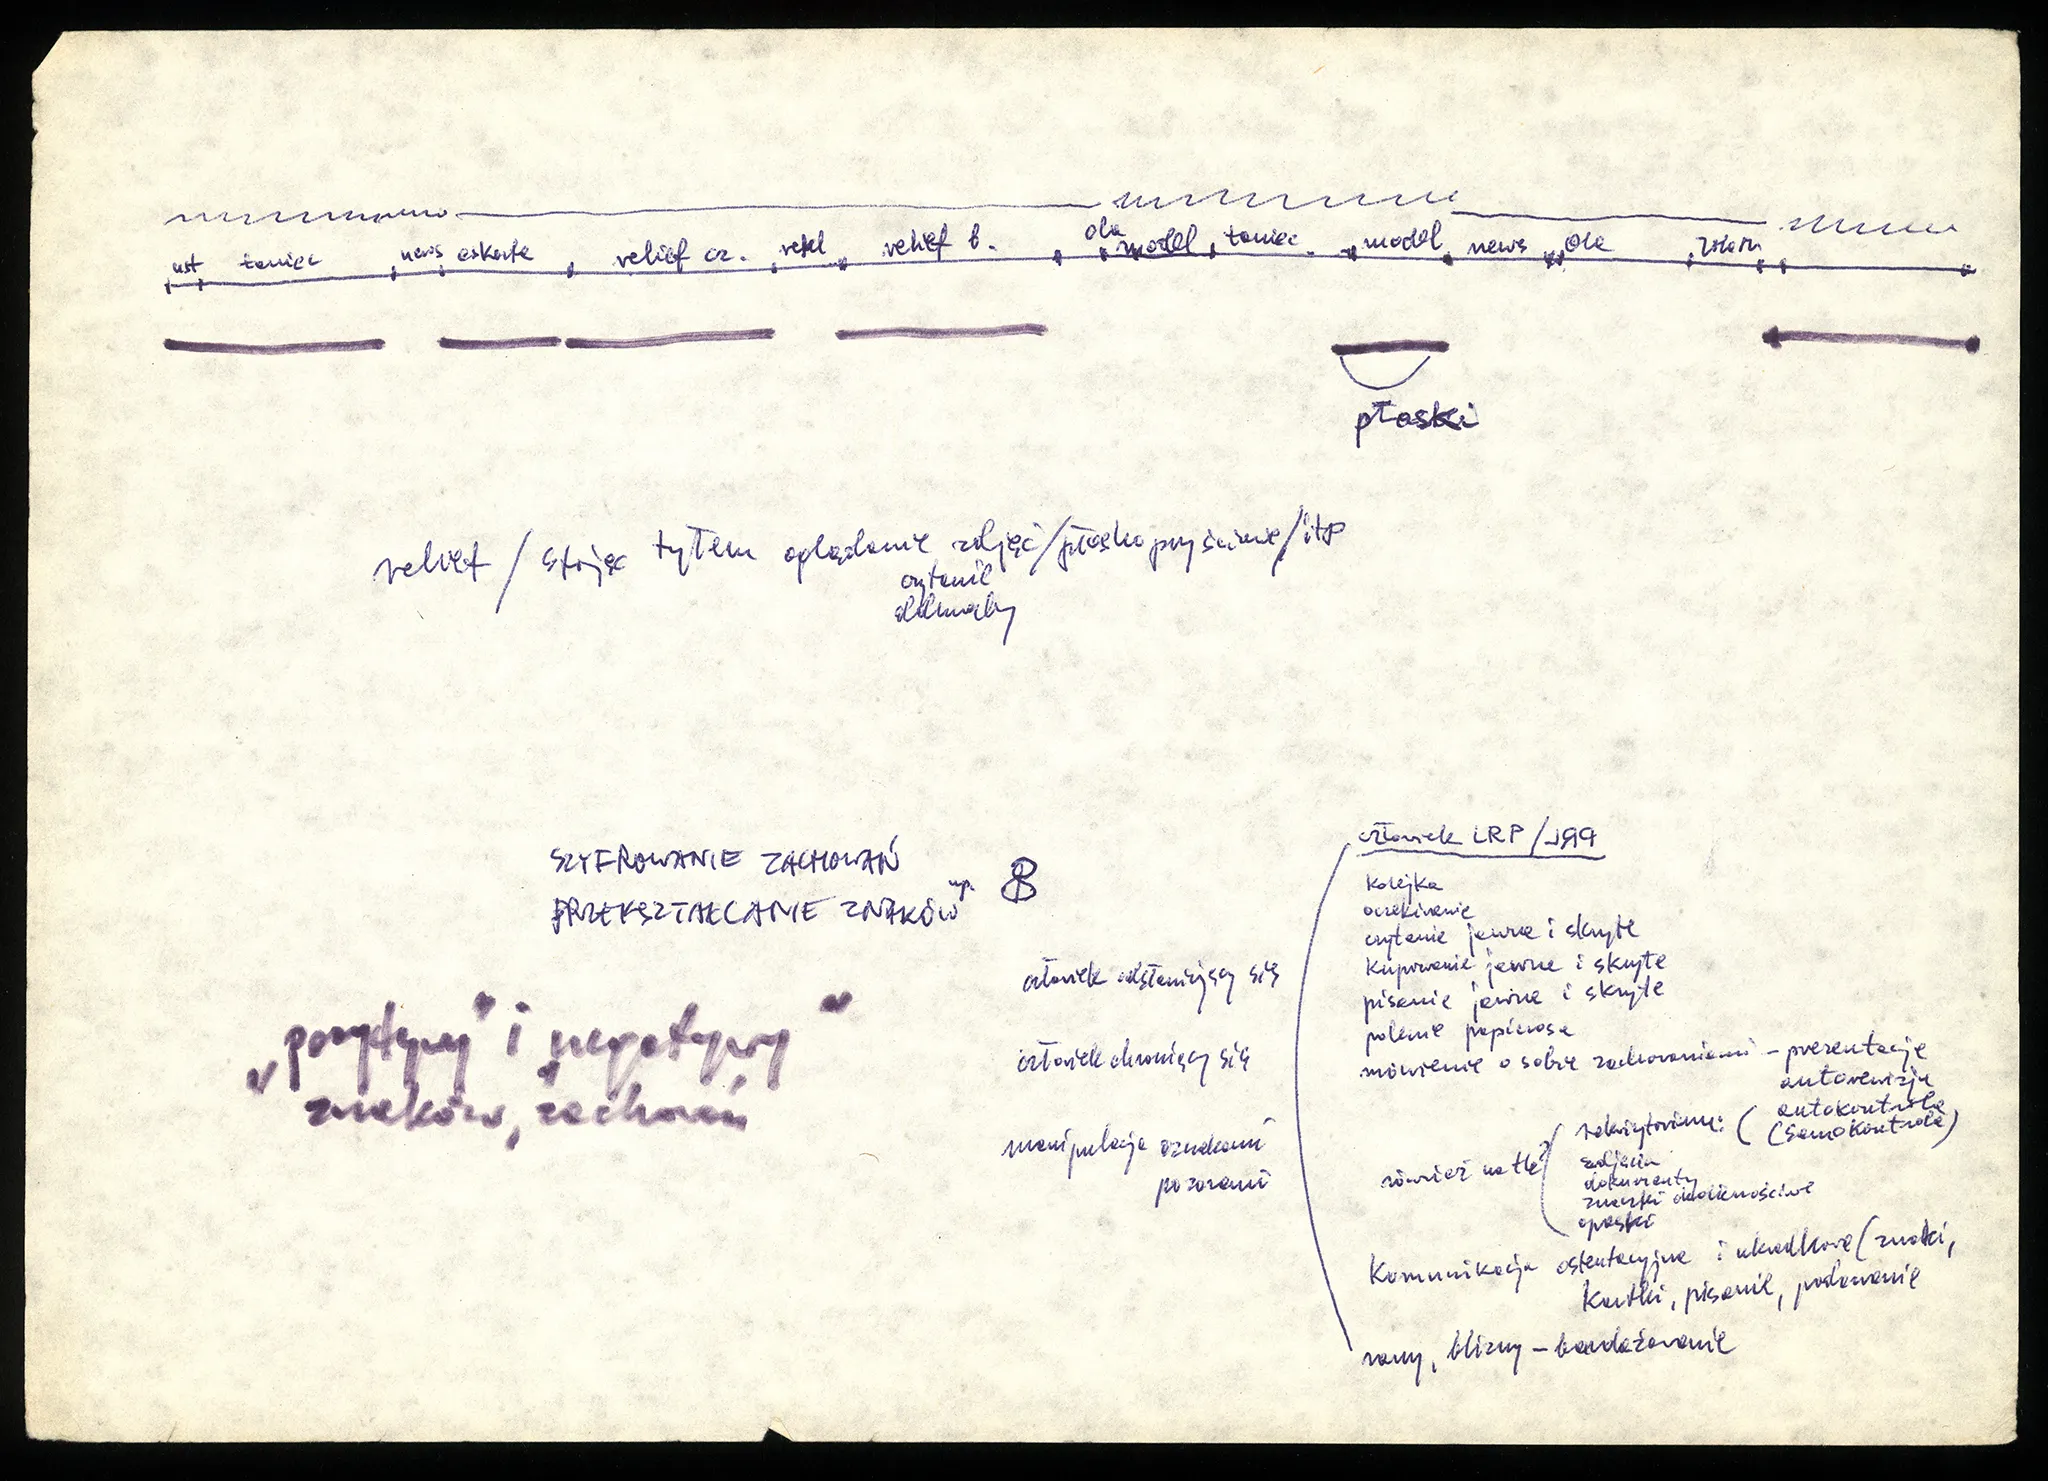 ust taniec news eskorta relief cz. rekl relief b. ola model taniec model news Ola
płaski
relief / stojąc tyłem oglądanie zdjęć / płasko przy ścianie / itp
czytanie
SZYFROWANIE ZACHOWAŃ
PRZEKSZTAŁCANIE ZNAKÓW np. 8
„pozytywy” i „negatywy”
znaków, zachowań
człowiek odsłaniający się
człowiek chroniący się
manipulacja oznakami
pozorami
człowiek LRP /
kolejka
oczekiwanie
czytanie jawne i skryte
kupowanie jawne i skryte
pisanie jawne i skryte
palenie papierosa
mówienie o sobie zachowaniami – prezentacje
autorewizja
autokontrola
(samokontrola)
również na tle
zdjęcia
dokumenty
znaczki okolicznościowe
opaski
Komunikacja ostentacyjna i ukradkowa (znaki,
kartki, pisanie, podawanie
rany, blizny – bandażowanie